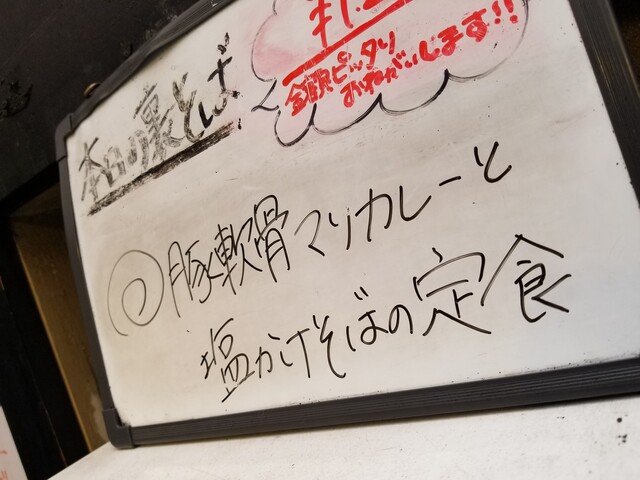 本日の裏そば
金額ピッタリ
おねがいします!!
◎豚軟骨マリカレーと
塩かけそばの定食